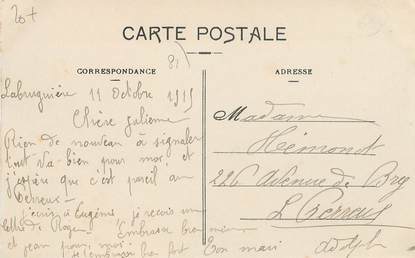 CARTE POSTALE
CORRESPONDANCE
Labruguière 11 Octobre 1915
Chère Julienne
Rien de nouveau à signaler
tout va bien pour moi et
j'espère que c'est pareil au
Perreux
écris à Eugénie je reçois une
lettre de Roger Embrasse bien
et Jean pour moi
Je t'embrasse bien fort Ton mari Adolph
ADRESSE
Madame
Hémonot
226 Avenue de Bry
Le Perreux